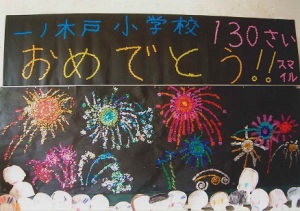 一ノ木戸小学校 130さい
おめでとう!! スマイル